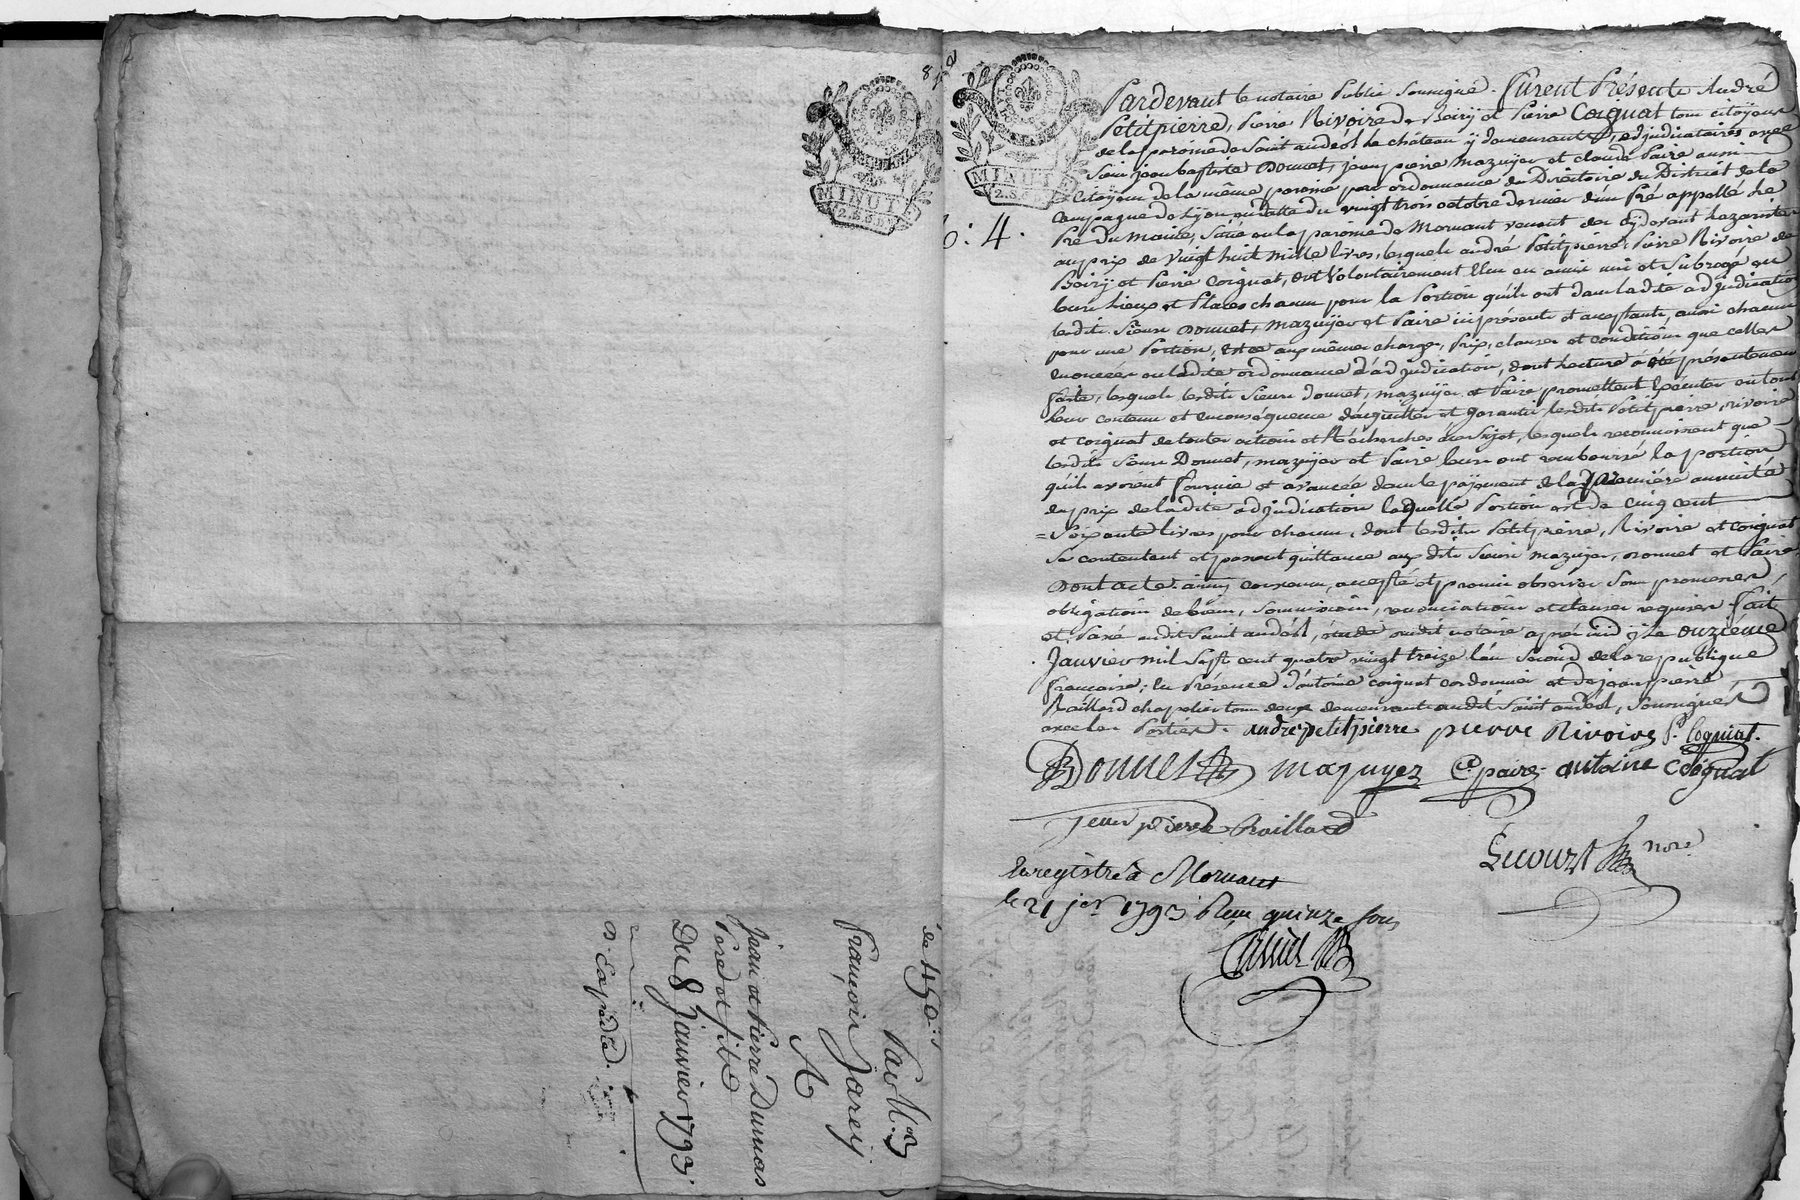 8
MINUTE
2.S.8.D.
de 450.#
Par M.re
François Jarey
A
Jean et Pierre Dumas
Pere et fils
Du 8 Janvier 1793
Expédié.
MINUTE
2.S.
4.
Pardevant le notaire Public soussigné. Furent Présents André
Petitpierre, Pierre Rivoire de Boiry et Pierre Coignat tous citoyens
de la paroisse de Saint andéol le château y demeurants, adjudicataires avec
Sieur jean baptiste Donnet, jean pierre Mazuyer et claude Paire aussi
Citoyens de la même paroisse par ordonnance du Directoire du District de la
Campagne de Lyon en datte du vingt trois octobre dernier d'un Pré appellé le
Pré du Maine, situé en la paroisse de Mornant venant des cÿdevant Lazaristes
au prix de vingt huit mille livres, lesquels andré Petitpierre, Pierre Rivoire de
Boirÿ et Pierre Coignat, ont volontairement Elu en amis mis et Subrogé en
leurs Lieux et Places chacun pour la Portion qu'ils ont dans ladite adjudication
lesdits Sieurs Donnet, Mazuÿer et Paire ici présents et acceptants, aussi chacun
pour une Portion, et ce aux mêmes charges, Prix, clauses et conditions que celles
enoncées en ladite ordonnance d'adjudication, dont lecture a été présentement
faite, lesquels lesdits Sieurs Donnet, mazuÿer et Paire promettent Exécuter en tout
leur contenu et en conséquence d'acquitter et garantir lesdits Petitpierre, rivoire
et coignat de toutes actions et Récherches à ce Sujet, lesquels reconnoissent que
lesdits Sieurs Donnet, mazuÿer et Paire leurs ont remboursé la portion
qu'ils avoient fournie et avancée dans le païement de la Premiére annuité
du prix de ladite adjudication laquelle Portion est de cinq cent
= Soixante livres pour chacun, dont lesdits Petitpierre, Rivoire et coignat
Se contentent et passent quittance aux dits Sieurs Mazuyer, Donnet et Paire,
Dont acte. ainsi convenu, accepté et promis observer sous promesses,
obligations de biens, Soumissions, renonciations et clauses requises. Fait
et Passé audit Saint andéol, étude dudit notaire après midi ÿ Le onzième
Janvier mil Sept cent quatre vingt treize l'an Second de la république
française; En Présence d'antoine coignat cordonnier et de jean pierre
Raillard chapelier tous deux demeurants audit Saint andéol, Soussignés
avec les Parties. andré petitpierre pierre Rivoire P. Cogniat.
Donnet Mazuyer C. paire antoine Coignat
jean pierre Raillard
Lecourt nore.
Enregistré à Mornant
le 21 jer 1793 Reçu quinze sous